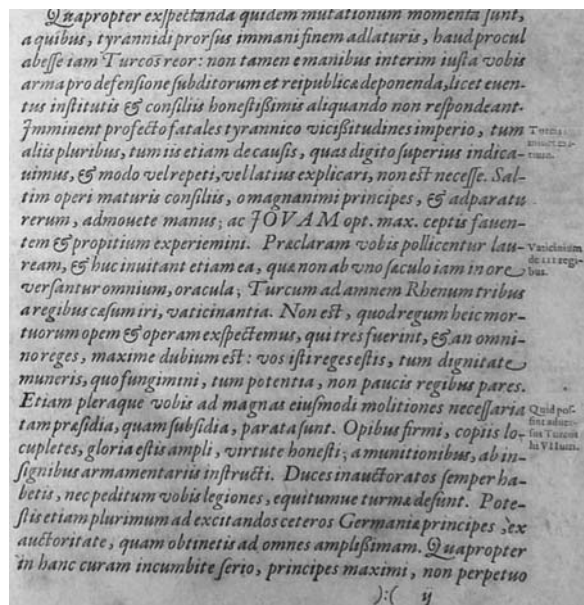 Quapropter exſpectanda quidem mutationum momenta ſunt,
a quibus, tyrannidi prorſus immani finem adlaturis, haud procul
abeſſe iam Turcos reor: non tamen e manibus interim iuſta vobis
arma pro defenſione ſubditorum et reipublicæ deponenda, licet euen-
tus inſtitutis & conſiliis honeſtißimis aliquando non reſpondeant.
Imminent profecto fatales tyrannico vicißitudines imperio, tum
aliis pluribus, tum iis etiam de cauſis, quas digito ſuperius indica-
uimus, & modo vel repeti, vel latius explicari, non eſt neceſſe. Sal-
tim operi maturis conſiliis, o magnanimi principes, & adparatu
rerum, admouete manus; ac JOVAM opt. max. ceptis fauen-
tem & propitium experiemini. Præclaram vobis pollicentur lau-
Vaticinium
de III regi-
bus.
ream, & huc inuitant etiam ea, quæ non ab vno ſæculo iam in ore
verſantur omnium, oracula; Turcum ad amnem Rhenum tribus
a regibus cæſum iri, vaticinantia. Non eſt, quod regum heic mor-
tuorum opem & operam exſpectemus, qui tres fuerint, & an omni-
no reges, maxime dubium eſt: vos iſti reges eſtis, tum dignitate
muneris, quo fungimini, tum potentia, non paucis regibus pares.
Etiam pleraque vobis ad magnas eiuſmodi molitiones neceſſaria
Quid poſ-
ſint aduer-
ſus Turcos
hi VII uiri.
tam præſidia, quam ſubſidia, parata ſunt. Opibus firmi, copiis lo-
cupletes, gloria eſtis ampli, virtute honeſti; a munitionibus, ab in-
ſignibus armamentariis inſtructi. Duces inauctoratos ſemper ha-
betis, nec peditum vobis legiones, equitumue turmæ deſunt. Pote-
ſtis etiam plurimum ad excitandos ceteros Germaniæ principes, ex
auctoritate, quam obtinetis ad omnes amplißimam. Quapropter
in hanc curam incumbite ſerio, principes maximi, non perpetuo
):( ij